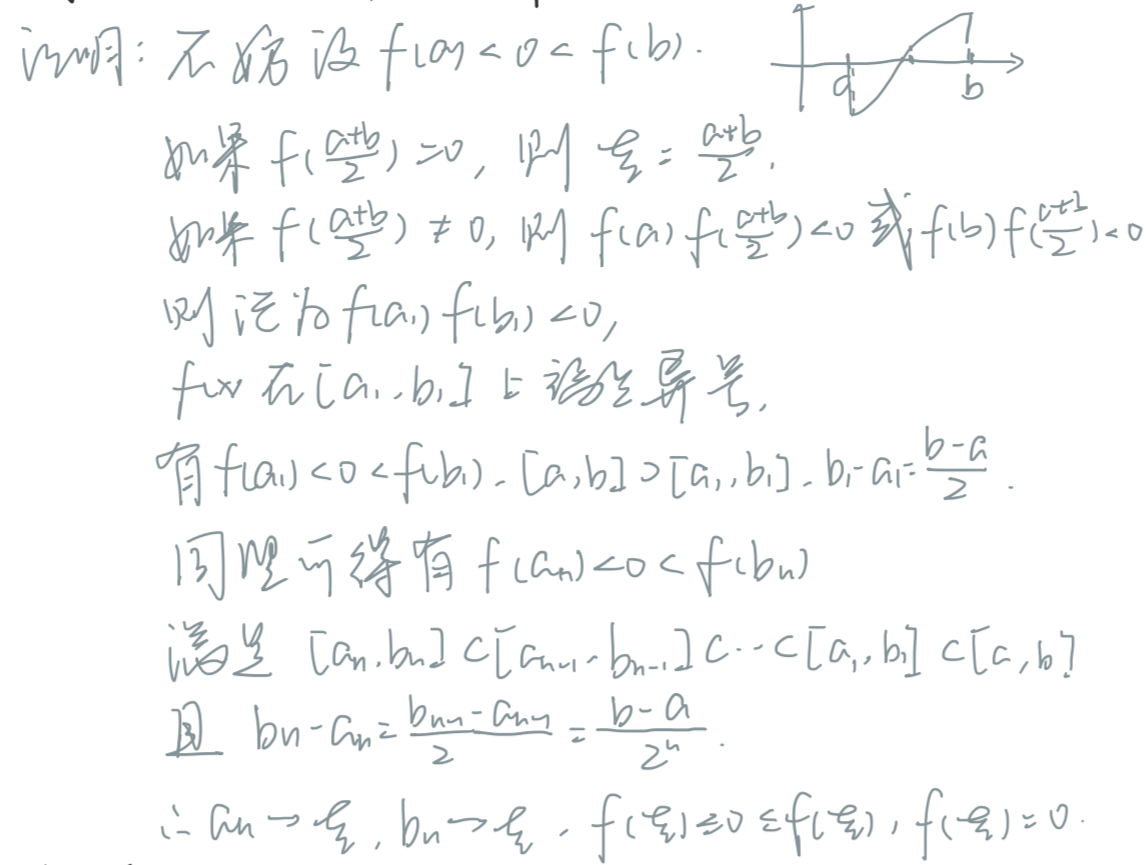 证明: 不妨设 f(a)<0<f(b).
a b
如果 f(\frac{a+b}{2})=0, 则 ξ=\frac{a+b}{2}.
如果 f(\frac{a+b}{2})≠0, 则 f(a)f(\frac{a+b}{2})<0 或 f(b)f(\frac{a+b}{2})<0
则记为 f(a₁)f(b₁)<0,
f(x) 在[a₁,b₁]上端点异号,
有 f(a₁)<0<f(b₁), [a,b]⊃[a₁,b₁], b₁-a₁=\frac{b-a}{2}.
同理可得有 f(aₙ)<0<f(bₙ)
满足 [aₙ,bₙ]⊂[aₙ₋₁,bₙ₋₁]⊂…⊂[a₁,b₁]⊂[a,b]
且 bₙ-aₙ=\frac{bₙ₋₁-aₙ₋₁}{2}=\frac{b-a}{2ⁿ}.
∴ aₙ→ξ, bₙ→ξ, f(ξ)≤0≤f(ξ), f(ξ)=0.